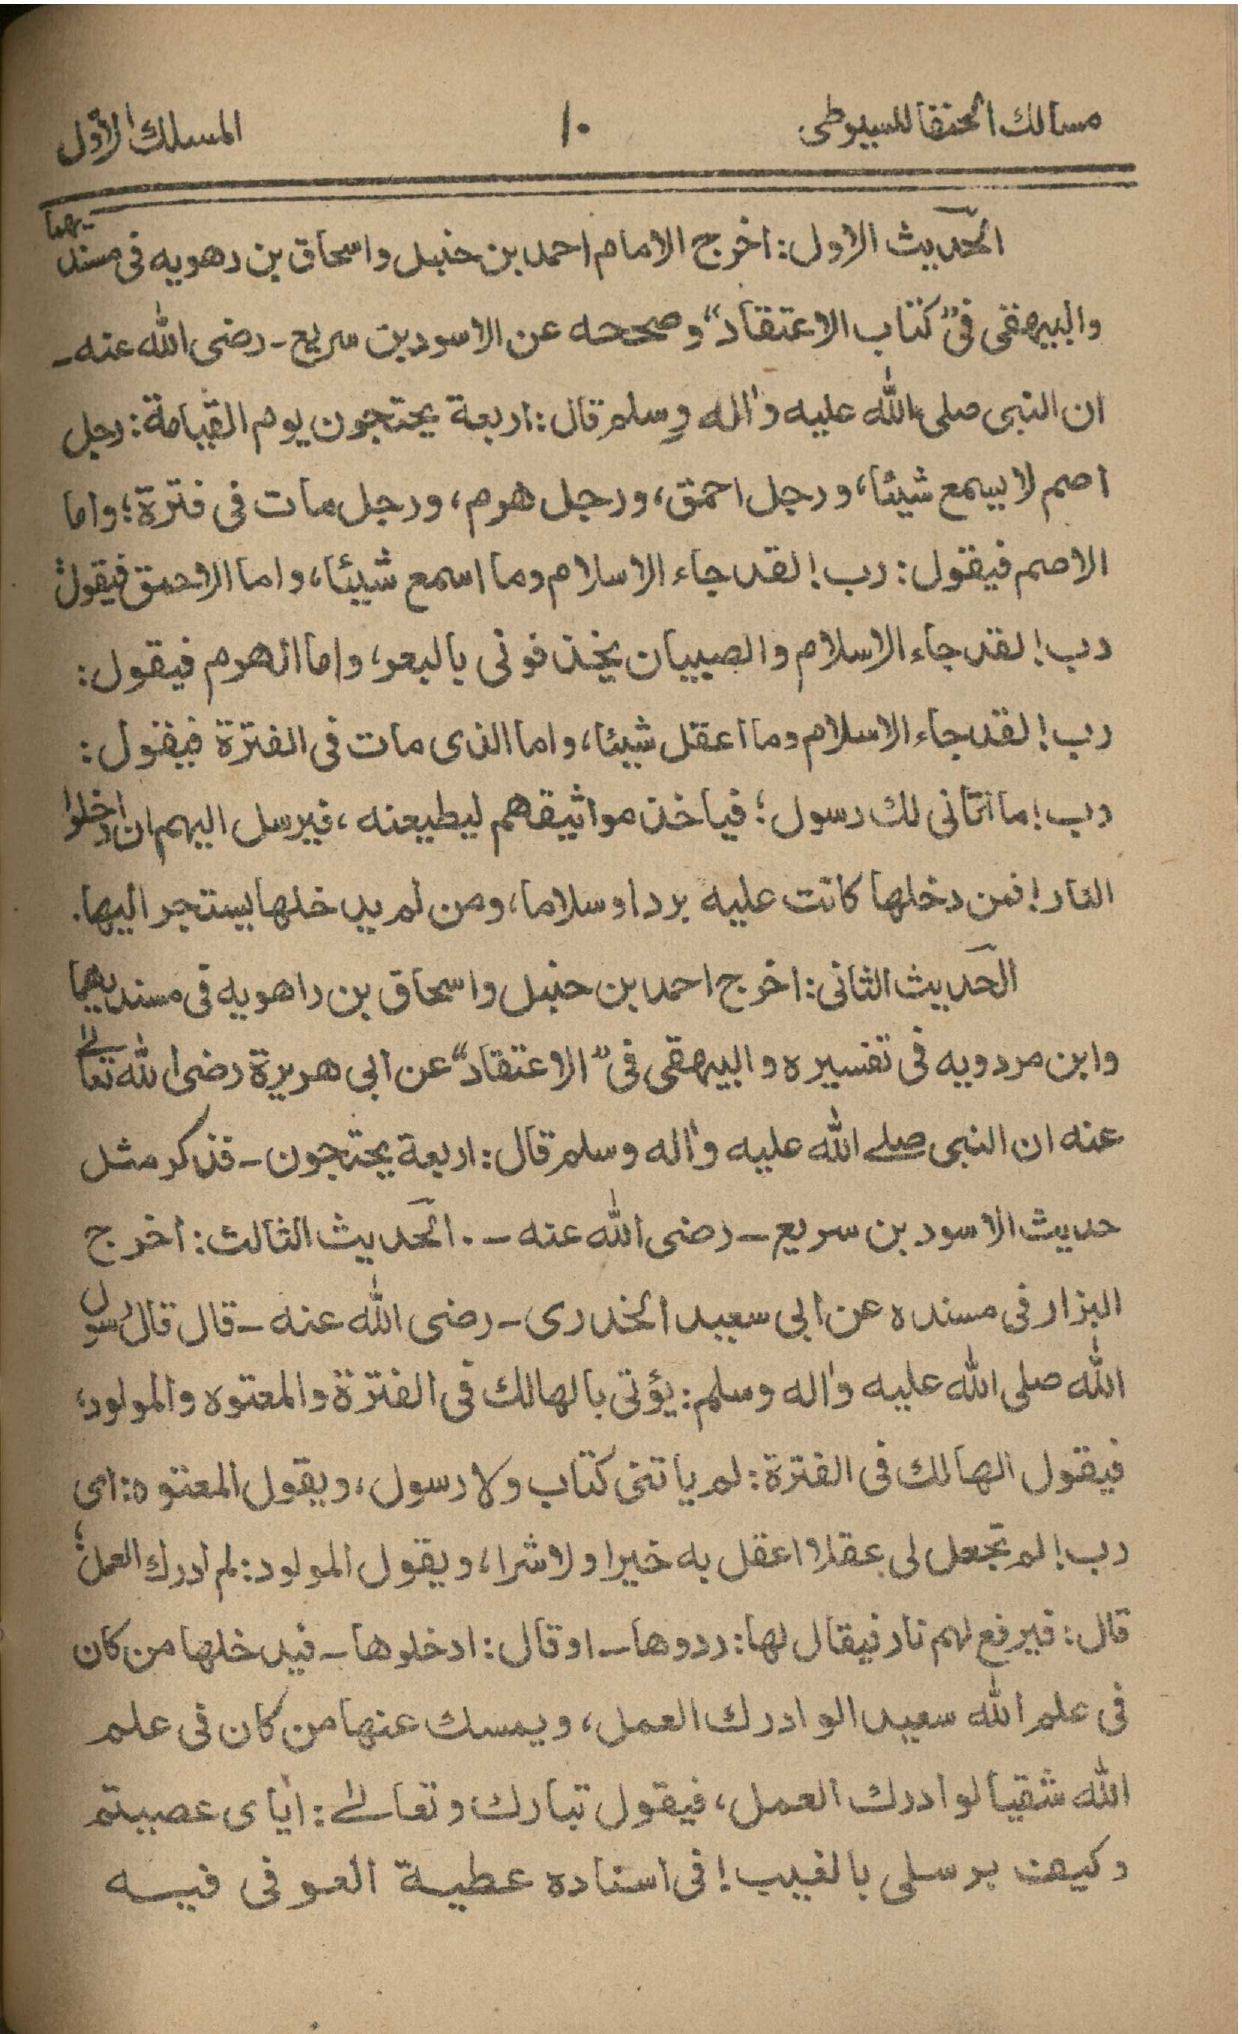 مسالك الحنفا للسيوطى ١٠ المسلك الأول
الحديث الاول: اخرج الامام احمد بن حنبل واسحاق بن رهويه فى مسنديهما
والبيهقى فى "كتاب الاعتقاد" وصححه عن الاسود بن سريع - رضى الله عنه -
ان النبى صلى الله عليه واٰله وسلم قال: اربعة يحتجون يوم القيامة: رجل
اصم لا يسمع شيئا، ورجل احمق، ورجل هرم، ورجل مات فى فترة؛ واما
الاصم فيقول: رب! لقد جاء الاسلام وما اسمع شيئا، واما الاحمق فيقول:
رب! لقد جاء الاسلام والصبيان يخذفونى بالبعر، واما الهرم فيقول:
رب! لقد جاء الاسلام وما اعقل شيئا، واما الذى مات فى الفترة فيقول:
رب! ما اتانى لك رسول؛ فياخذ مواثيقهم ليطيعنه، فيرسل اليهم ان ادخلوا
النار! فمن دخلها كانت عليه بردا وسلاما، ومن لم يدخلها يستجر اليها.
الحديث الثانى: اخرج احمد بن حنبل واسحاق بن راهويه فى مسنديهما
وابن مردويه فى تفسيره والبيهقى فى "الاعتقاد" عن ابى هريرة رضى الله تعالىٰ
عنه ان النبى صلے الله عليه واٰله وسلم قال: اربعة يحتجون - فذكر مثل
حديث الاسود بن سريع - رضى الله عنه -. الحديث الثالث: اخرج
البزار فى مسنده عن ابى سعيد الخدرى - رضى الله عنه - قال قال رسول
الله صلى الله عليه واٰله وسلم: يؤتى بالهالك فى الفترة والمعتوه والمولود؛
فيقول الهالك فى الفترة: لم ياتنى كتاب ولا رسول، ويقول المعتوه: اى
رب! لم تجعل لى عقلا اعقل به خيرا ولا شرا، ويقول المولود: لم ادرك العمل؛
قال: فيرفع لهم نار فيقال لها: ردوها - او قال: ادخلوها - فيدخلها من كان
فى علم الله سعيدا لو ادرك العمل، ويمسك عنها من كان فى علم
الله شقيا لو ادرك العمل، فيقول تبارك وتعالىٰ: اياى عصيتم
وكيف برسلى بالغيب! فى اسناده عطية العوفى فيه